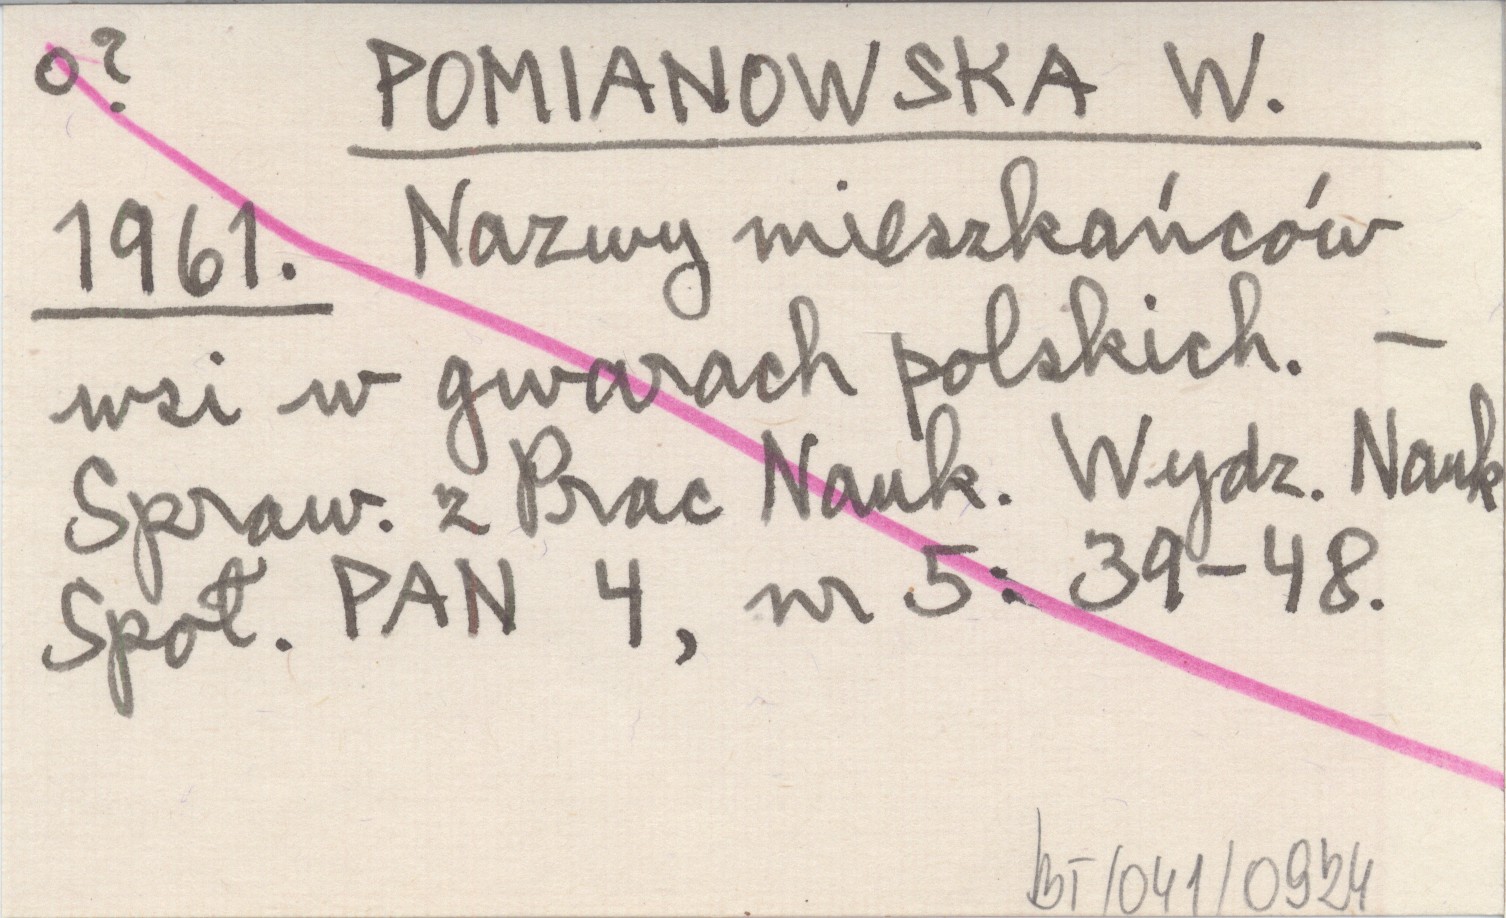 o? POMIANOWSKA W.
1961. Nazwy mieszkańców
wsi w gwarach polskich. –
Spraw. z Prac Nauk. Wydz. Nauk
Społ. PAN 4, nr 5: 39–48.
BT/041/0924